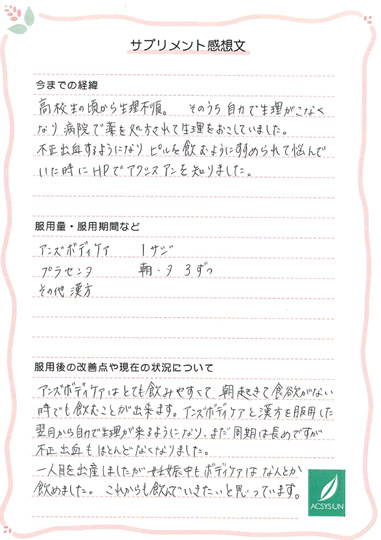 サプリメント感想文
今までの経緯
高校生の頃から生理不順。 そのうち自力で生理がこなく
なり病院で薬を処方されて生理をおこしていました。
不正出血するようになりピルを飲むようにすすめられて悩んで
いた時にHPでアクシスアンを知りました。
服用量・服用期間など
アンズボディケア 1サジ
プラセンタ 朝・夕 3ずつ
その他 漢方
服用後の改善点や現在の状況について
アンズボディケアはとても飲みやすくて 朝起きて食欲がない
時でも飲むことが出来ます。アンズボディケアと漢方を服用した
翌月から自力で生理が来るようになり、まだ周期は長めですが
不正出血もほとんどなくなりました。
一人目を出産しましたが妊娠中もボディケアはなんとか
飲めました。 これからも飲んでいきたいと思っています。
ACSYSUN